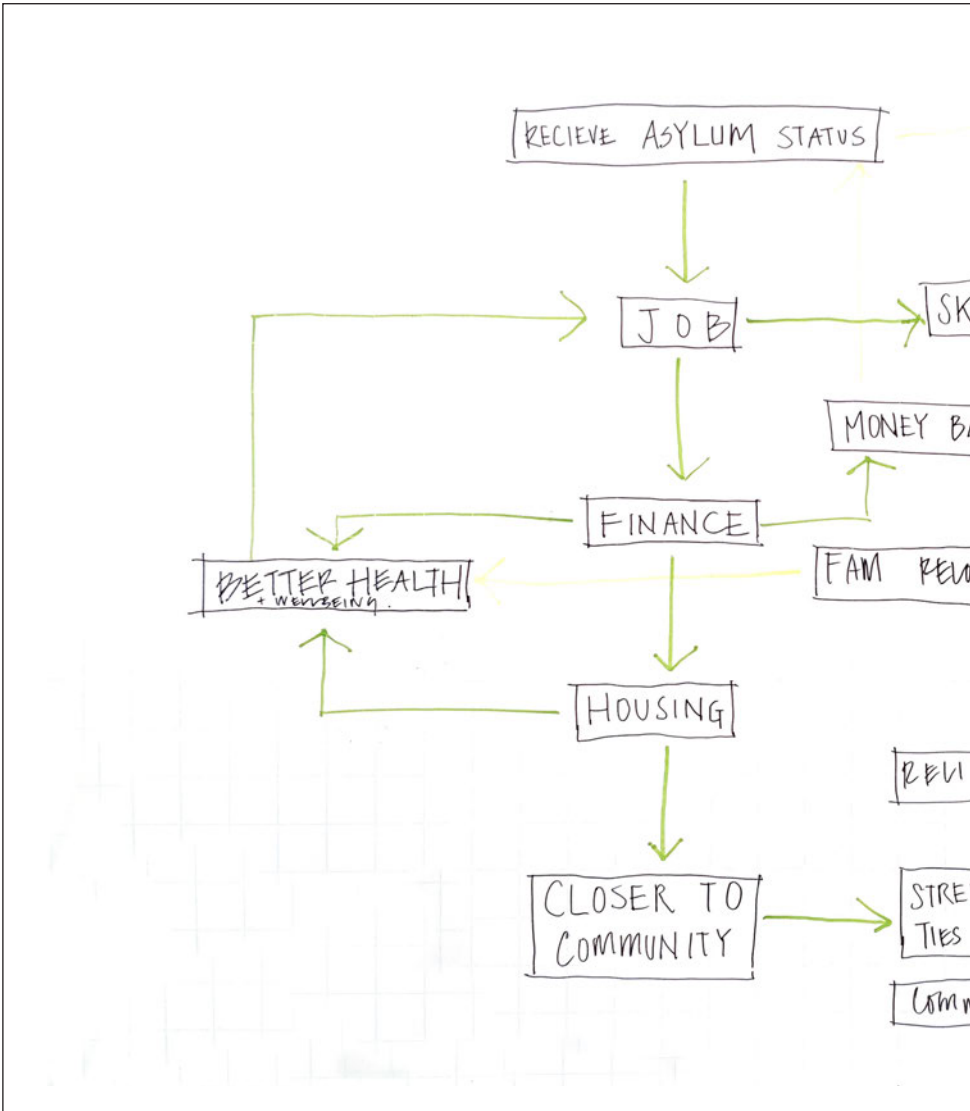 RECIEVE ASYLUM STATUS
JOB
SK
MONEY BA
FINANCE
FAM RELO
BETTER HEALTH
+ WELLBEING.
HOUSING
RELI
CLOSER TO
COMMUNITY
STRE
TIES
Comm